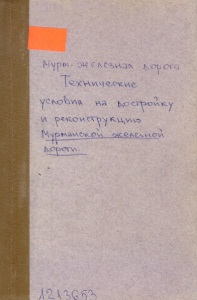 Мурм. железная дорога
Технические
условия на достройку
и реконструкцию
Мурманской железной
дороги.
1213653